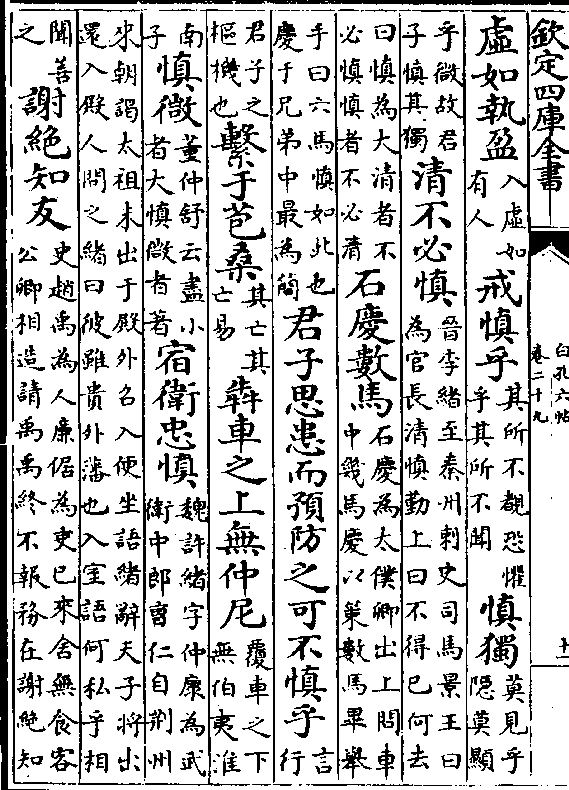 欽定四庫全書
白孔六帖
卷二十九
十
虛如執盈 入虛如有人 戒慎乎 其所不覩恐懼乎其所不聞 慎獨 莫見乎隱莫顯
乎微故君子慎其獨 清不必慎 晉李緒至秦州刺史司馬景王曰為官長清慎勤上曰不得已何去
曰慎為大清者不必慎慎者不必清 石慶數馬 石慶為太僕卿出上問車中幾馬慶以策數馬畢舉
手曰六馬慎如此也慶于兄弟中最為簡 君子思患而預防之可不慎乎 言行
君子之樞機也 繫于苞桑 其亡其亡易 犇車之上無仲尼 覆車之下無伯夷淮
南子 慎微 董仲舒云盡小者大慎微者著 宿衛忠慎 魏許緒字仲康為武衛中郎曹仁自荆州
來朝謁太祖未出于殿外召入便坐語緒辭天子將出還入殿人問之緒曰彼雖貴外藩也入室語何私乎相
聞善之 謝絶知友 史趙禹為人廉倨為吏已來舍無食客公卿相造請禹禹終不報務在謝絶知